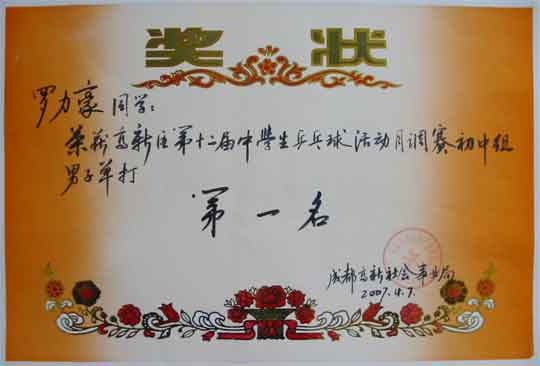 奖状
罗力豪同学：
荣获高新区第十二届中學生乒乓球活动月调赛初中组
男子单打
第一名
成都高新社会事业局
2007.4.7.